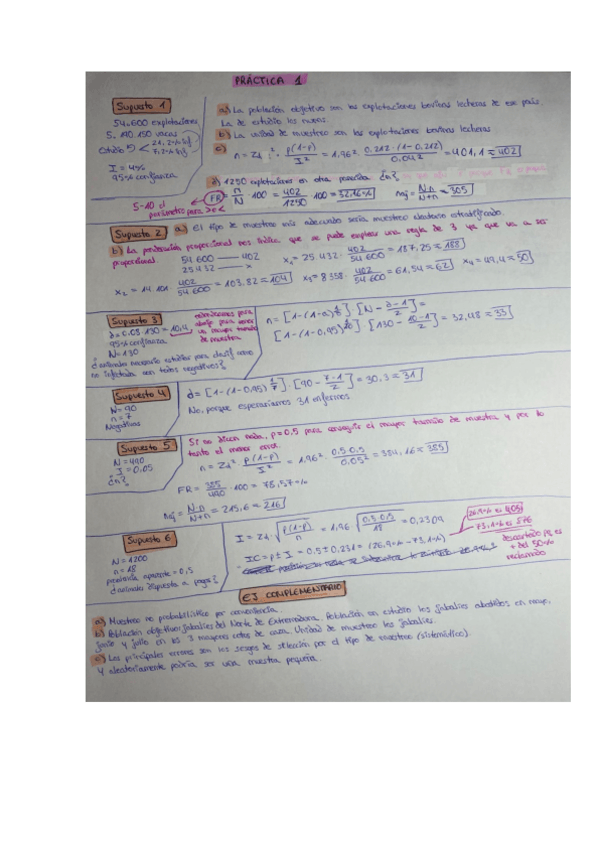 PRÁCTICA 1
Supuesto 1
54.600 explotaciones
5.110.150 vacas
Estudio 5) < 21,2% inf
7,2% inf
I = 4%
95% confianza
a) La población objetivo son las explotaciones bovinas lecheras de ese país.
La de estudio los nuevos.
b) La unidad de muestreo son las explotaciones bovinas lecheras
c) n = Zα² · p(1-p) / I² = 1,96² · 0,212 · (1-0,212) / 0,04² = 401,1 ≈ 402
d) 1250 explotaciones en otra parecida ¿n?
FR = n/N · 100 = 402/1250 · 100 = 32,16% naj = N·n / N+n = 305
5-10 el
parámetro para
Supuesto 2
a) El tipo de muestreo más adecuado sería muestreo aleatorio estratificado.
b) La ponderación proporcional nos indica que se puede emplear una regla de 3 ya que va a ser
proporcional
54 600 —— 402
25.432 —— x
x₁ = 25.432 · 402 / 54 600 = 187,25 ≈ 188
x₂ = 14.101 · 402 / 54 600 = 103,82 ≈ 104 x₃ = 8358 · 402 / 54 600 = 61,54 ≈ 62 x₄ = 49,4 ≈ 50
Supuesto 3
d = 0.08 · 130 = 10,4
95% confianza
N = 130
para
n = [1-(1-α)^1/d] · [N - d-1/2] =
[1-(1-0,95)^1/10] · [130 - 10-1/2] = 32,48 ≈ 33
¿animales necesario estudiar para clasif como
no infectada con todos negativos?
Supuesto 4
N = 90
n = 7
Negativos
d = [1-(1-0,95)^1/7] · [90 - 7-1/2] = 30,3 ≈ 31
No, porque esperaríamos 31 enfermos
Supuesto 5
N = 490
I = 0,05
¿n?
Si no dicen nada, p = 0,5 para conseguir el mayor tamaño de muestra y por lo
tanto el menor error.
n = Zα² · p(1-p) / I² = 1,96² · 0,5·0,5 / 0,05² = 384,16 ≈ 385
FR = 385/490 · 100 = 78,57%
naj = N·n / N+n = 215,6 ≈ 216
Supuesto 6
N = 1200
n = 18
prevalencia aparente = 0,5
¿animales dispuesto a pagar?
I = Zα · √p(1-p)/n = 1,96 · √0,5·0,5/18 = 0,2309
IC = p ± I = 0,5 ± 0,231 = (26,9% - 73,1%)
73,1% es
del 50%
EJ COMPLEMENTARIO
a) Muestreo no probabilístico por conveniencia.
b) Población objetivo: jabalíes del Norte de Extremadura. Población en estudio los jabalíes abatidos en mayo,
junio y julio en los 3 mayores cotos de caza. Unidad de muestreo los jabalíes.
c) Los principales errores son los sesgos de selección por el tipo de muestreo (sistemático).
Y aleatoriamente podría ser una muestra pequeña.